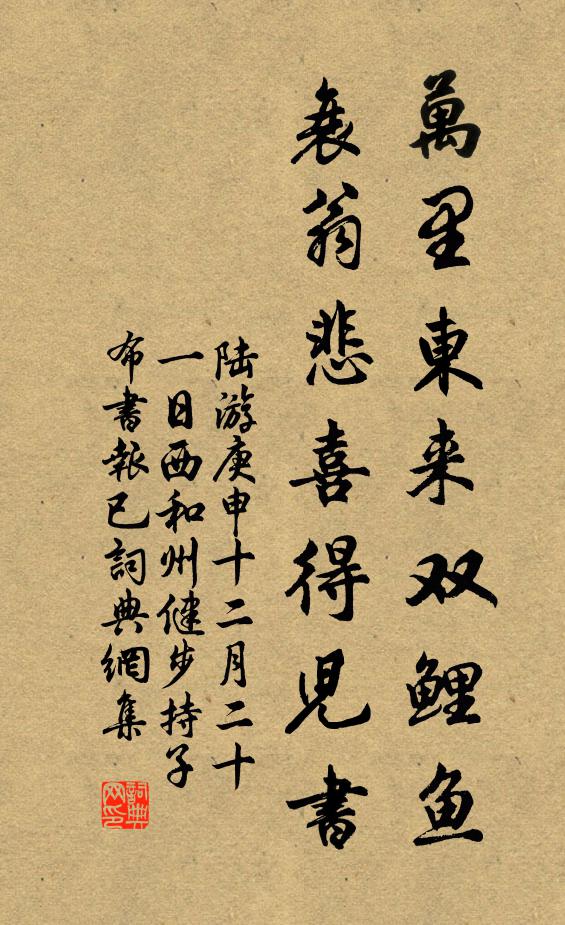 萬里東来双鯉鱼
衰翁悲喜得兒書
陆游庚申十二月二十
一日西和州健步持子
布書報已詞典網集
詞典网印